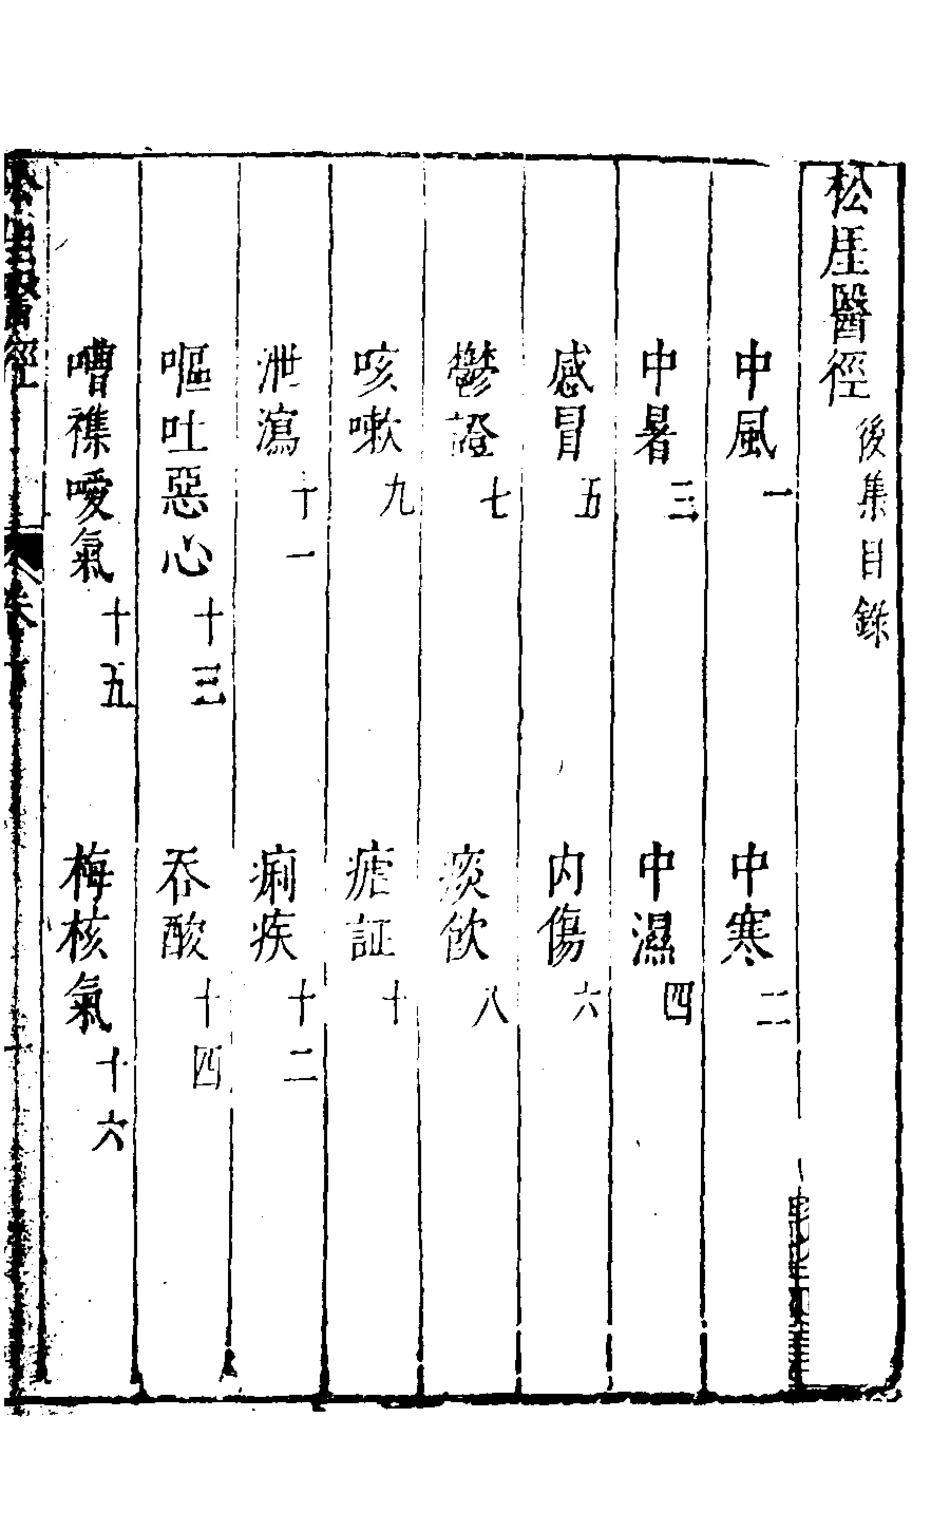 松厓醫徑後集目錄
中風一 中寒二
中暑三 中濕四
感冒五 内傷六
鬱證七 痰飲八
咳嗽九 瘧証十
泄瀉十一 痢疾十二
嘔吐惡心十三 吞酸十四
嘈襍噯氣十五 梅核氣十六
醫徑